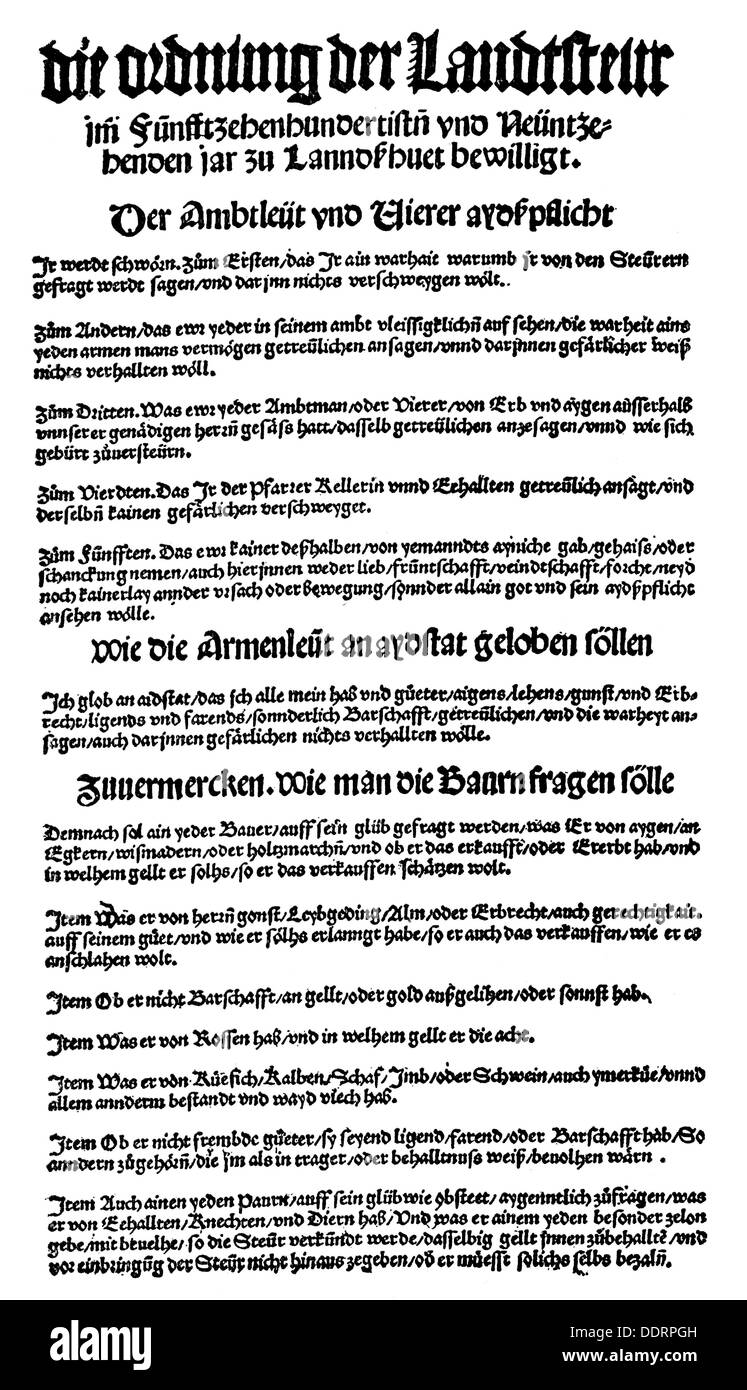 die ordnung der Landtsteur
jm̃ Fünfftzehenhundertistñ vnd Neüntze⸗
henden jar zu Lanndßhuet bewilligt.
Der Ambtleüt vnd Vierer aydßpflicht
Ir werdt schwörn. Zům Ersten/das Ir ain warhait warumb jr von den Steürern
gefragt werdt sagen/vnd darjnn nichts verschweygen wölt..
Zům Andern/das ewr yeder in seinem ambt vleissigklichñ auf sehen/die warheit ains
yeden armen mans vermögen getreülichen ansagen/vnnd darjnnen gefärlicher weiß
nichts verhallten wöll.
Zům Dritten. Was ewr yeder Ambtman/oder Vierer/von Erb vnd aygen ausserhalb
vnnserer genädigen herrñ gesäss hatt/dasselb getreülichen anzesagen/vnnd wie sich
gebürt zůuersteürn.
Zům Vierdten. Das Ir der Pfarrer Kellerin vnnd Eehallten getreülich ansagt/vnd
derselbñ kainen gefärlichen verschweyget.
Zům Fünfften. Das ewr kainer deßhalben/von yemanndts ayniche gab/gehaiss/oder
schanckung nemen/auch hierjnnen weder lieb/früntschafft/veindtschafft/forcht/neyd
noch kainerlay annder vrsach oder bewegung/sonnder allain got vnd sein aydßpflicht
ansehen wölle.
Wie die Armenleüt an aydstat geloben söllen
Ich glob an aidstat/das jch alle mein hab vnd güeter/aigens/lehens/gunst/vnd Erb⸗
recht/ligends vnd farends/sonnderlich Barschafft/getreülichen/vnd die warheyt an⸗
sagen/auch darjnnen gefärlichen nichts verhallten wölle.
Zuuermercken. Wie man die Baurn fragen sölle
Demnach sol ain yeder Bauer/auff sein glüb gefragt werden/was Er von aygen/an
Egkern/wismadern/oder holtzmarchñ/vnd ob er das erkaufft/oder Ererbt hab/vnd
in welhem gellt er solhs/so er das verkauffen schätzen wolt.
Item Was er von herrñ gonst/Leybgeding/Alm/oder Erbrecht/auch gerechtigkait.
auff seinem güet/vnd wie er sölhs erlanngt habe/so er auch das verkauffen/wie er es
anschlahen wolt.
Item Ob er nicht Barschafft/an gellt/oder gold außgelihen/oder sonnst hab.
Item Was er von Rossen hab/vnd in welhem gellt er die acht.
Item Was er von Küefich/Kalben/Schaf/Imb/oder Schwein/auch ymerküe/vnnd
allem annderm bestandt vnd wayd viech hab.
Item Ob er nicht frembde güeter/sy seyend ligend/farend/oder Barschafft hab/So
anndern zůgehörñ/die jm als in trager/oder behalltnuss weiß/beuolhen wärn .
Item Auch ainen yeden Paurn/auff sein glüb wie obsteet/aygenntlich zůfragen/was
er von Eehallten/Knechten/vnd Diern hab/Vnd was er ainem yeden besonder zelon
gebe/mit beuelhe/so die Steür verkündt werde/dasselbig gellt jnnen zůbehalltñ/vnd
vor einbringũg der Steür nicht hinaus zegeben/od er müesst solichs selbs bezalñ.
alamy
Image ID: DDRPGH
www.alamy.com